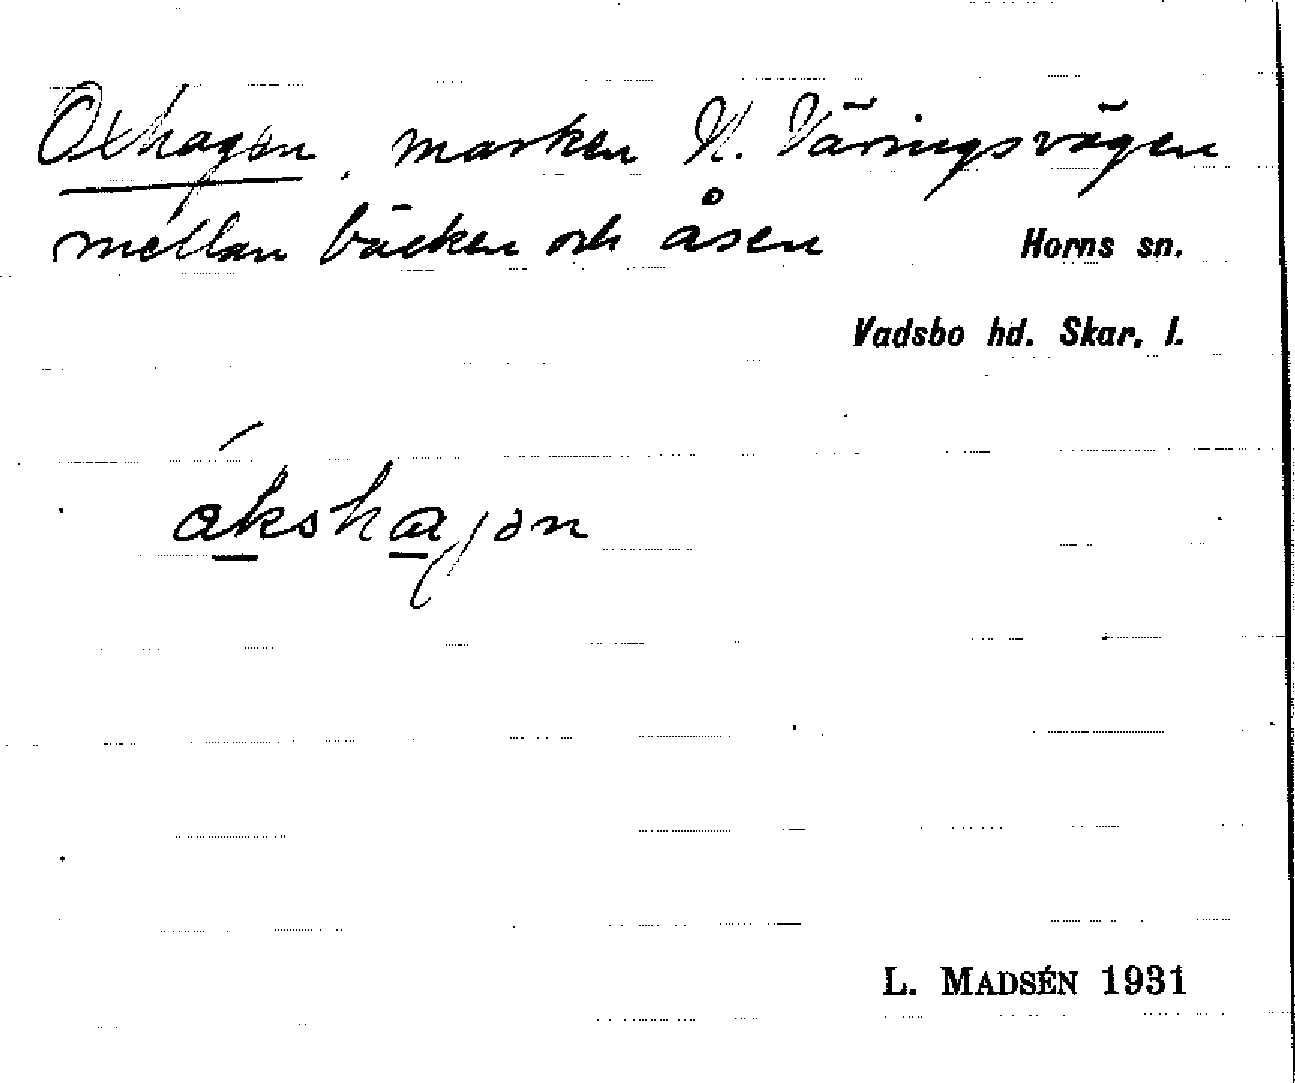 Oxhagen, marken N. Väringsvägen
mellan bäcken och åsen
Horns sn.
Vadsbo hd. Skar. l.
ákshaɡən
L. MADSÉN 1931